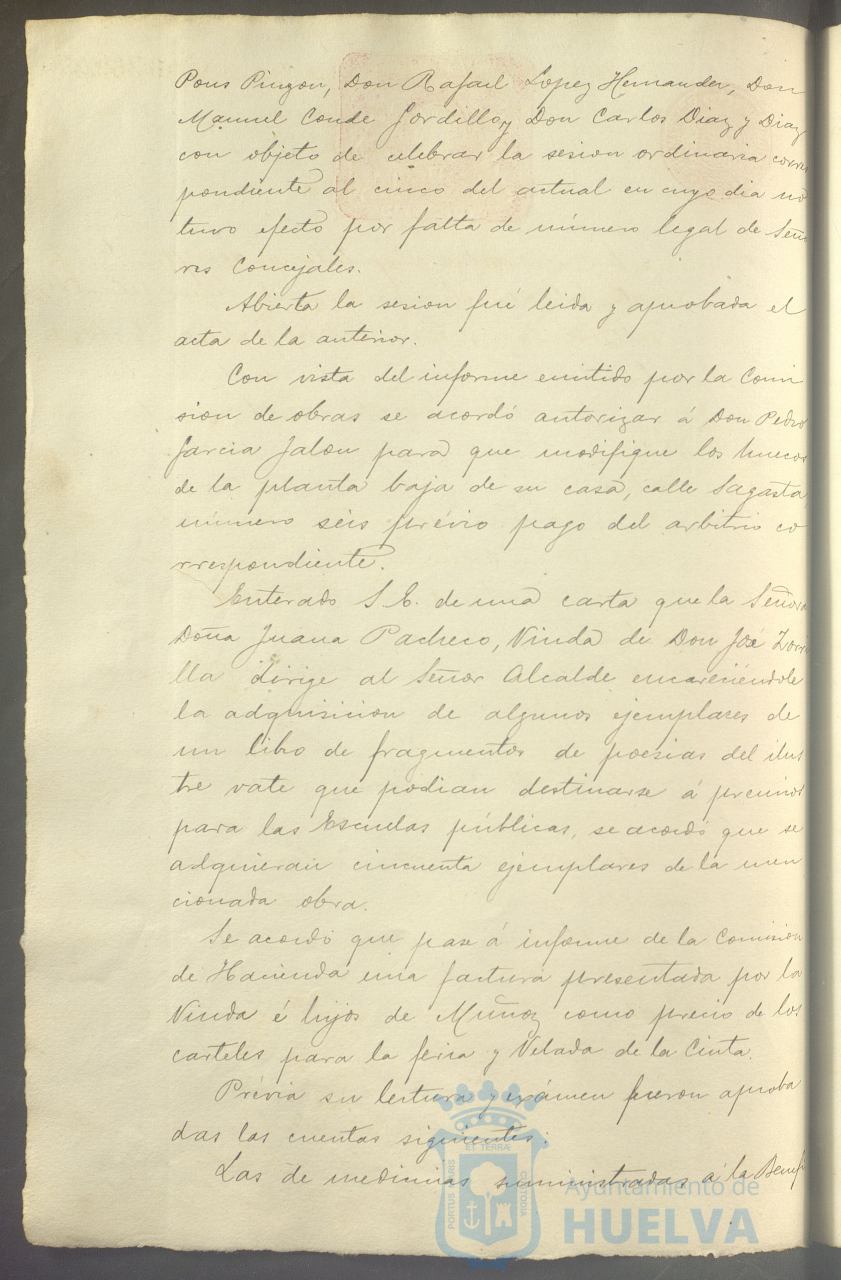 Pons Pinzon, Don Rafael Lopez Hernandez, Don
Manuel Conde Gordillo y Don Carlos Diaz y Diaz
con objeto de celebrar la sesion ordinaria corres
pondiente al cinco del actual en cuyo dia no
tuvo efecto por falta de número legal de Seño
res Concejales.
Abierta la sesion fué leida y aprobada el
acta de la anterior.
Con vista del informe emitido por la Comi
sion de obras se acordó autorizar á Don Pedro
Garcia Jalon para que modifique los huecos
de la planta baja de su casa, calle Sagasta,
número seis prévio pago del arbitrio co
rrespondiente.
Enterado S. E. de una carta que la Señora
Doña Juana Pacheco, Viuda de Don José Zorri
lla dirige al Señor Alcalde encareciéndole
la adquisicion de algunos ejemplares de
un libro de fragmentos de poesias del ilus
tre vate que podian destinarse á premios
para las Escuelas públicas, se acordó que se
adquieran cincuenta ejemplares de la men
cionada obra.
Se acordó que pase á informe de la Comision
de Hacienda una factura presentada por la
Viuda é hijos de Muñoz como precio de los
carteles para la feria y Velada de la Cinta.
Prévia su lectura y exámen fueron aproba
das las cuentas siguientes:
Las de medicinas suministradas á la Benefi
PORTUS MARIS
ET TERRÆ
CUSTODIA
Ayuntamiento de
HUELVA